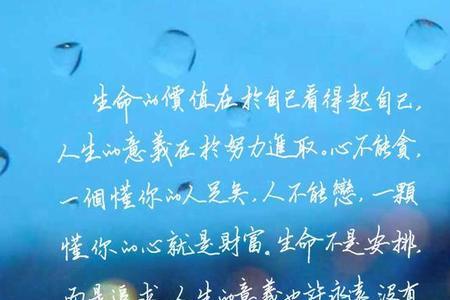 生命的價值在於自己看得起自己，
人生的意義在於努力進取。心不能貪，
一個懂你的人足矣，人不能戀，一顆
懂你的心就是財富。生命不是安排，
而是追求，人生的意義也許永遠沒有